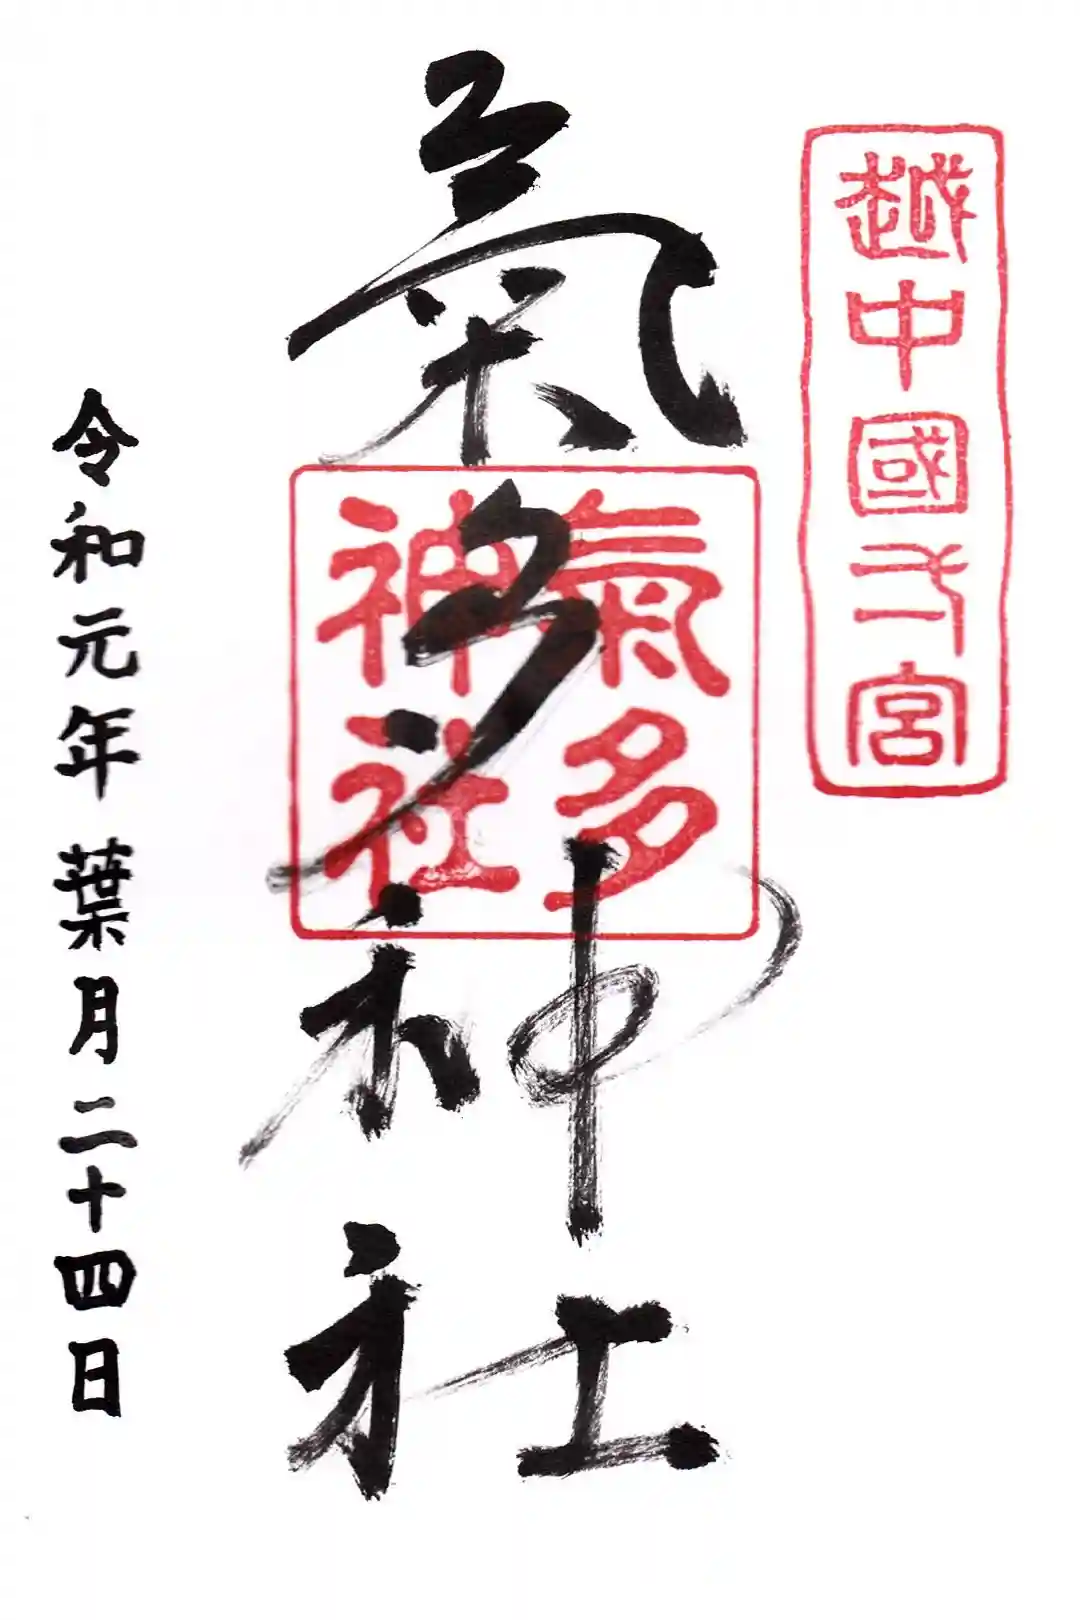 越中國一宮
氣多神社
氣多神社
令和元年葉月二十四日